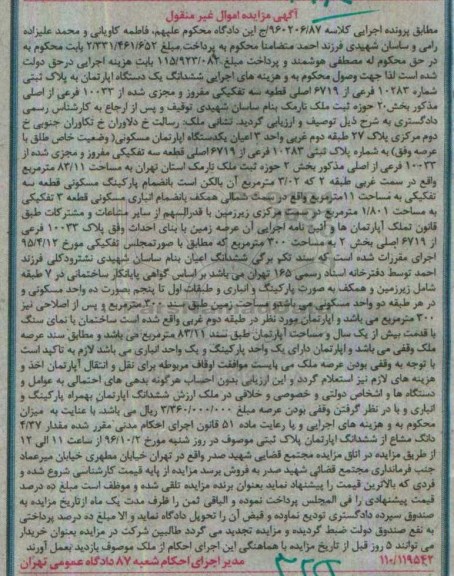 آگهی مزایده اموال غیر منقول
مطابق پرونده اجرایی کلاسه ۹۶۰۲۰۶/۸۷ج این دادگاه محکوم علیهم، فاطمه کاویانی و محمد علیزاده
رامی و ساسان شهیدی فرزند احمد متضامنا محکوم به پرداخت مبلغ ۲/۳۳۱/۴۶۱/۶۵۲ بابت محکوم به
در حق محکوم له مصطفی هوشمند و پرداخت مبلغ ۱۱۵/۹۲۳/۰۸۲ بابت هزینه اجرایی درحق دولت
شده است لذا جهت وصول محکوم به و هزینه های اجرایی ششدانگ یک دستگاه اپارتمان به پلاک ثبتی
شماره ۱۰۲۸۳ فرعی از ۶۷۱۹ اصلی قطعه سه تفکیکی مفروز و مجزی شده از ۱۰۰۳۳ فرعی از اصلی
مذکور بخش ۲۰ حوزه ثبت ملک نارمک بنام ساسان شهیدی توقیف و پس از ارجاع به کارشناس رسمی
دادگستری به شرح ذیل توصیف و ارزیابی گردید. نشانی ملک: رسالت خ دلاوران خ تکاوران جنوبی خ
دوم مرکزی پلاک ۲۷ طبقه دوم غربی واحد ۳ اعیان یکدستگاه اپارتمان مسکونی( وضعیت خاص طلق با
عرصه وقف) به شماره پلاک ثبتی ۱۰۲۸۳ فرعی از ۶۷۱۹ اصلی قطعه سه تفکیکی مفروز و مجزی شده از
۱۰۰۳۳ فرعی از اصلی مذکور بخش ۲ حوزه ثبت ملک نارمک استان تهران به مساحت ۸۳/۱۱ مترمربع
واقع در سمت غربی طبقه ۲ که ۳/۰۲ مترمربع آن بالکن است بانضمام پارکینگ مسکونی قطعه سه
تفکیکی به مساحت ۱۱مترمربع واقع در سمت شمالی همکف بانضمام انباری مسکونی قطعه ۳ تفکیکی
به مساحت ۱/۸۰۱ مترمربع در سمت مرکزی زیرزمین با قدرالسهم از سایر مشاعات و مشترکات طبق
قانون تملک آپارتمان ها و آئین نامه اجرایی آن عرصه زمین با بنای احداث وفق پلاک ۱۰۰۳۳ فرعی
از ۶۷۱۹ اصلی بخش ۲ به مساحت ۳۰۰ مترمربع که مطابق با صورتمجلس تفکیکی مورخ ۹۵/۴/۱۲
اجرای مقررات شده است که سند تکم برگی ششدانگ اعیان بنام ساسان شهیدی نشترودکلی فرزند
احمد توسط دفترخانه اسناد رسمی ۱۶۵ تهران می باشد بر اساس گواهی پایانکار ساختمانی در ۷ طبقه
شامل زیرزمین و همکف به صورت پارکینگ و انباری و طبقات اول تا پنجم بصورت ده واحد مسکونی و
در هر طبقه دو واحد مسکونی می باشد و مساحت زمین طبق سند ۳۰۰ مترمربع و پس از اصلاحی نیز
۳۰۰ مترمربع می باشد و اپارتمان مورد نظر در طبقه دوم غربی واقع شده است ساختمان با نمای سنگ
با قدمت بیش از یک سال و مساحت آپارتمان طبق سند ۸۳/۱۱ مترمربع می باشد و مطابق سند عرصه
ملک وقفی می باشد و اپارتمان دارای یک واحد پارکینگ و یک واحد انباری می باشد لازم به تاکید است
با توجه به وقفی بودن عرصه ملک می بایست موافقت اوقاف مربوطه برای نقل و انتقال آپارتمان اخذ و
هزینه های لازم نیز استعلام گردد و این ارزیابی بدون احتساب هرگونه بدهی های احتمالی به عوامل و
دستگاه ها و اشخاص دولتی و خصوصی و خلافی در ملک ارزش ششدانگ اپارتمان بهمراه پارکینگ و
انباری و با در نظر گرفتن وقفی بودن عرصه مبلغ ۳/۳۶۰/۰۰۰/۰۰۰ ریال می باشد. با عنایت به میزان
محکوم به و هزینه های اجرایی و با رعایت ماده ۵۱ قانون اجرای احکام مدنی مقرر شده مقدار ۴/۳۷
دانگ مشاع از ششدانگ اپارتمان پلاک ثبتی موصوف در روز شنبه مورخ ۹۶/۱۰/۲ از ساعت ۱۱ الی ۱۲
از طریق مزایده در اتاق مزایده مجتمع قضایی شهید صدر واقع در تهران خیابان مطهری خیابان میرعماد
جنب فرمانداری مجتمع قضائی شهید صدر به فروش برسد مزایده از پایه قیمت کارشناسی شروع شده و
فردی که بالاترین قیمت را پیشنهاد نماید بعنوان برنده مزایده تلقی شده و موظف است مبلغ ده درصد
قیمت پیشنهادی را فی المجلس پرداخت نموده و الباقی ثمن را ظرف مدت یک ماه ازتاریخ مزایده به
صندوق سپرده دادگستری تودیع نماوده و قبض آن را تحویل دادگاه نماید و الا مبلغ ده درصد پرداختی
به نفع صندوق دولت ضبط گردیده و مزایده تجدید می گردد طالبین شرکت در مزایده بعنوان خریدار
می توانند ۵ روز قبل از تاریخ مزایده با هماهنگی این اجرای احکام از ملک موصوف بازدید بعمل آورند
۱۱۰/۱۱۹۵۴۲ مدیر اجرای احکام شعبه ۸۷ دادگاه عمومی تهران